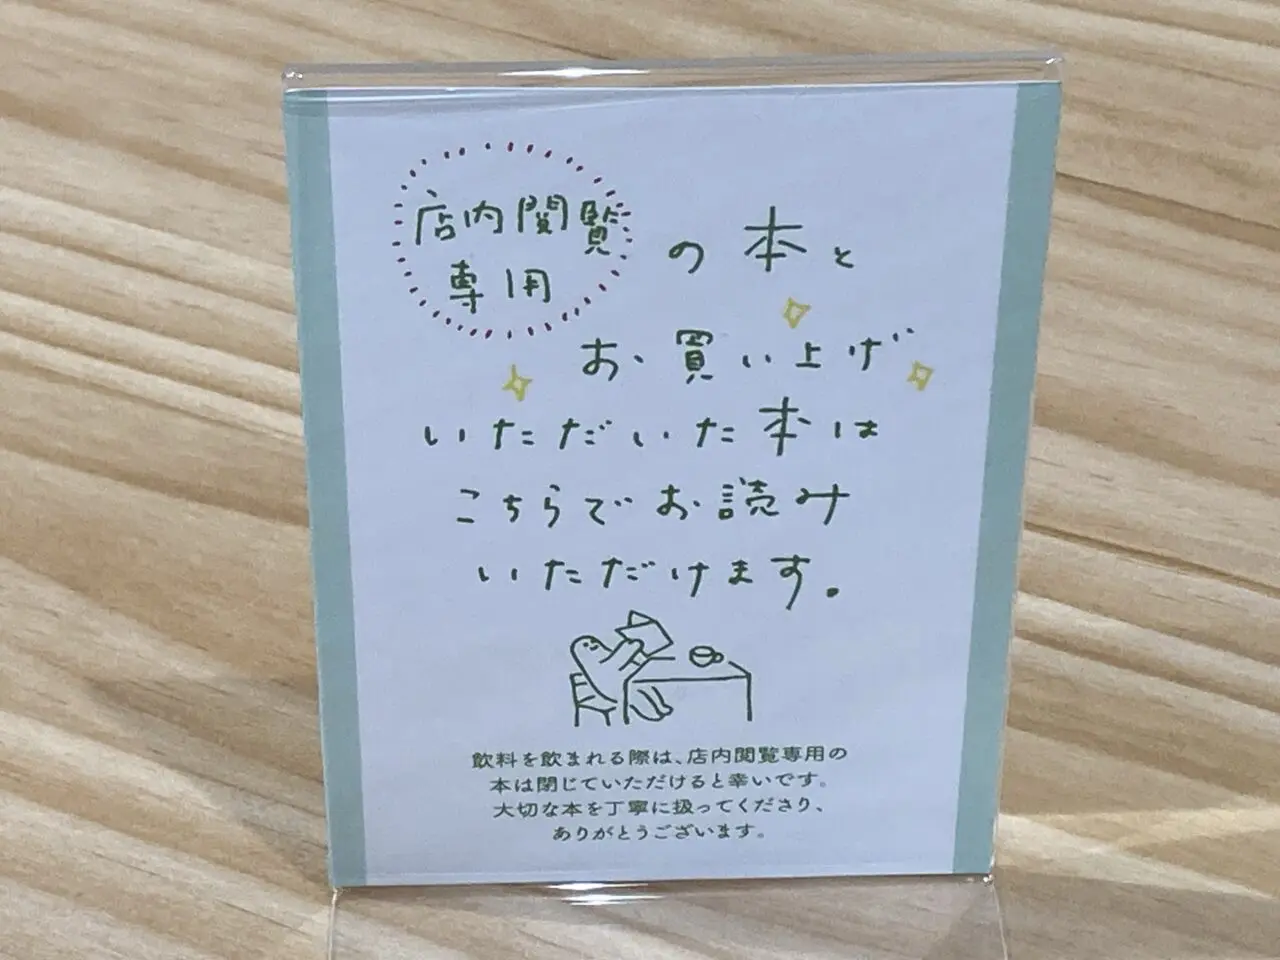 店内閲覧
専用 の本と
お買い上げ
いただいた本は
こちらでお読み
いただけます。
飲料を飲まれる際は、店内閲覧専用の
本は閉じていただけると幸いです。
大切な本を丁寧に扱ってくださり、
ありがとうございます。